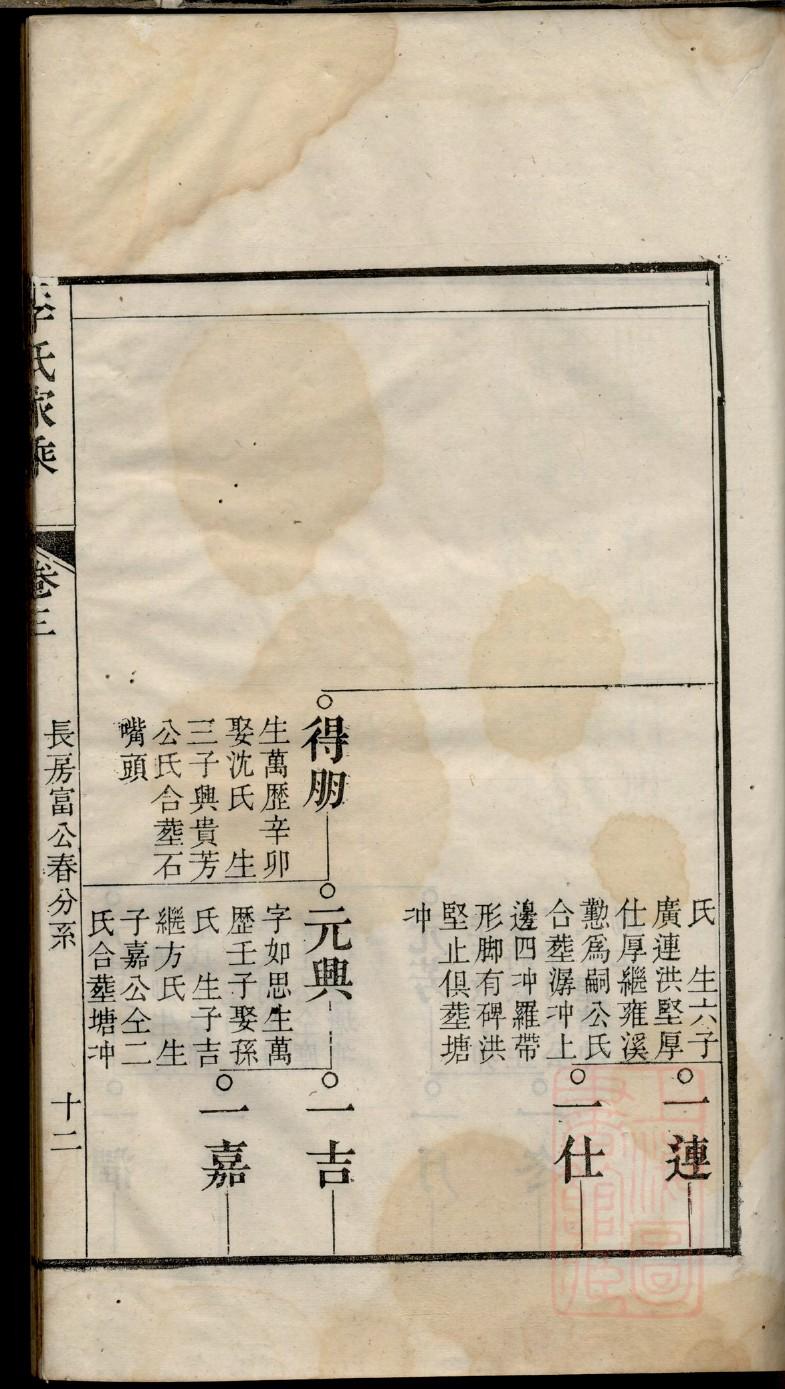 氏　生六子
廣連洪堅厚
仕厚繼雍溪
懃爲嗣公氏
合塟潺冲上
邊四冲羅帶
形脚有碑洪
堅止俱塟塘
冲
一連
一仕
得朋
生萬歷辛卯
娶沈氏　生
三子興貴芳
公氏合塟石
嘴頭
元興
字如思生萬
歷壬子娶孫
氏　生子吉
繼方氏　生
子嘉公仝二
氏合塟塘冲
一吉
一嘉
氏家乘
卷三
長房富公春分系
十二